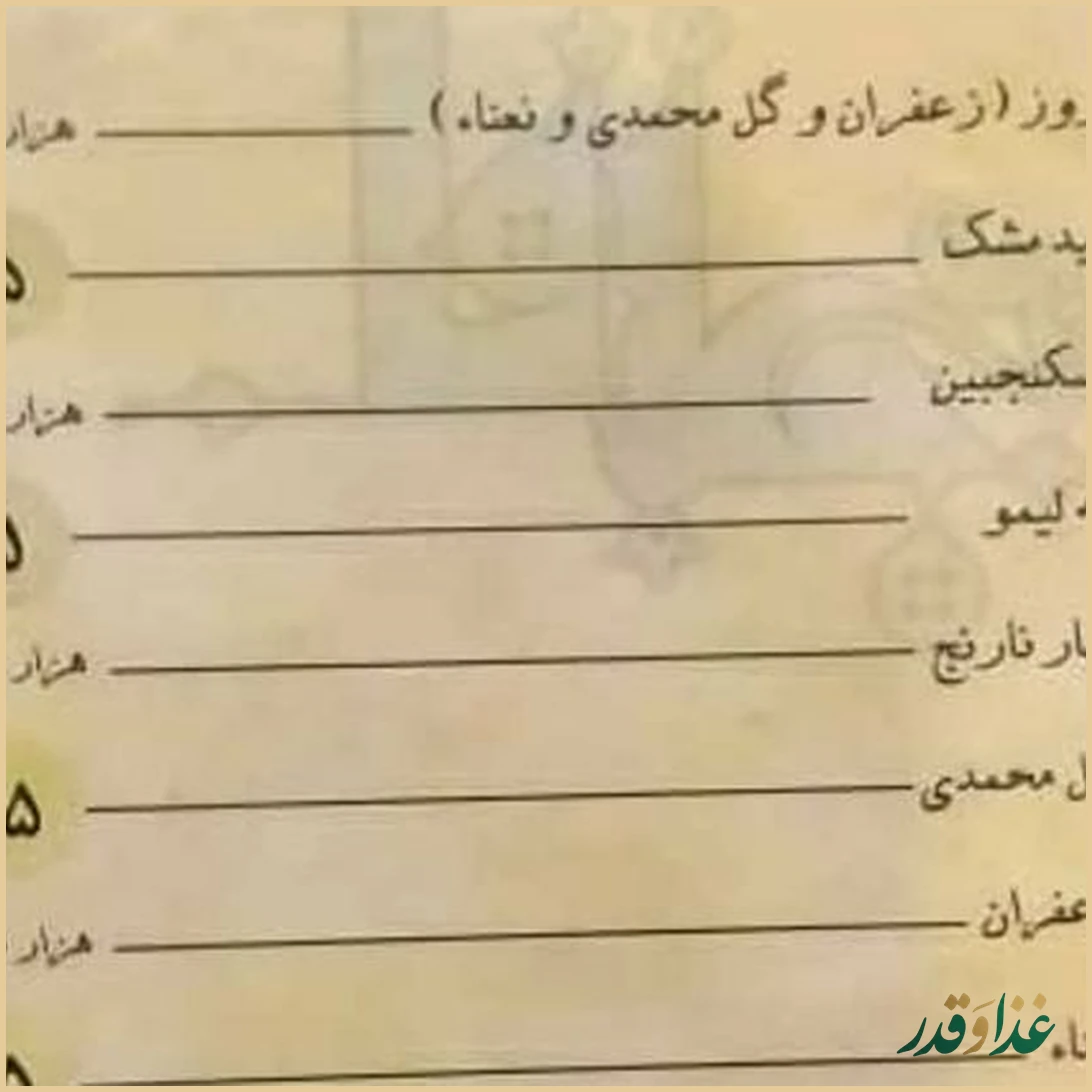 روز (زعفران و گل محمدی و نعناء) هزار
ید مشک ۵
سکنجبین هزار
لیمو ۵
ار نارنج هزار
ل محمدی ۵
عفران هزار
ناء ۵
غذا و قدر